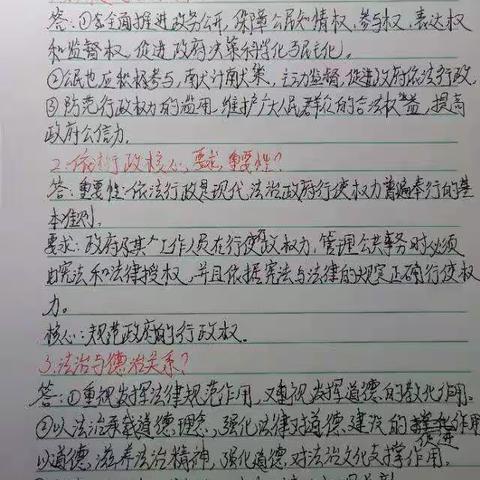 答:①全面推进政务公开,保障公民知情权,参与权,表达权
和监督权,促进政府决策科学化民主化。
②公民也应积极参与,献计献策,主动监督,促进政府依法行政。
③防范行政权力的滥用,维护广大人民群众的合法权益,提高
政府公信力。
2.依法行政核心,要求,重要性?
答:重要性:依法行政是现代法治政府行使权力普遍奉行的基
本准则。
要求:政府及其工作人员在行使行政权力,管理公共事务时必须
由宪法和法律授权,并且依据宪法与法律的规定正确行使权
力。
核心:规范政府的行政权。
3.法治与德治关系?
答:①重视发挥法律规范作用,又重视发挥道德的教化作用。
②以法治承载道德理念,强化法律对道德建设的促进作用
以道德滋养法治精神,强化道德对法治文化支撑作用。